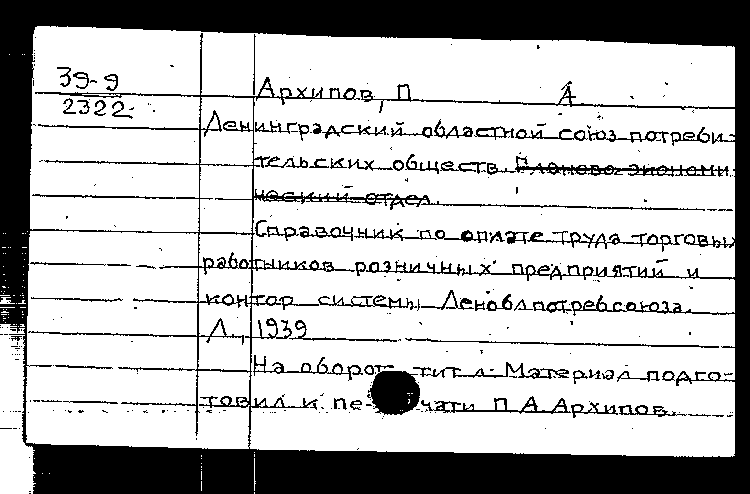 39-9
2322
Архипов, П А
Ленинградский областной союз потреби-
тельских обществ. Планово-экономи-
ческий отдел.
Справочник по оплате труда торговых
работников розничных предприятий и
контор системы Леноблпотребсоюза.
Л., 1939
На обороте тит л. Материал подго-
товил к пе- чати П. А. Архипов.